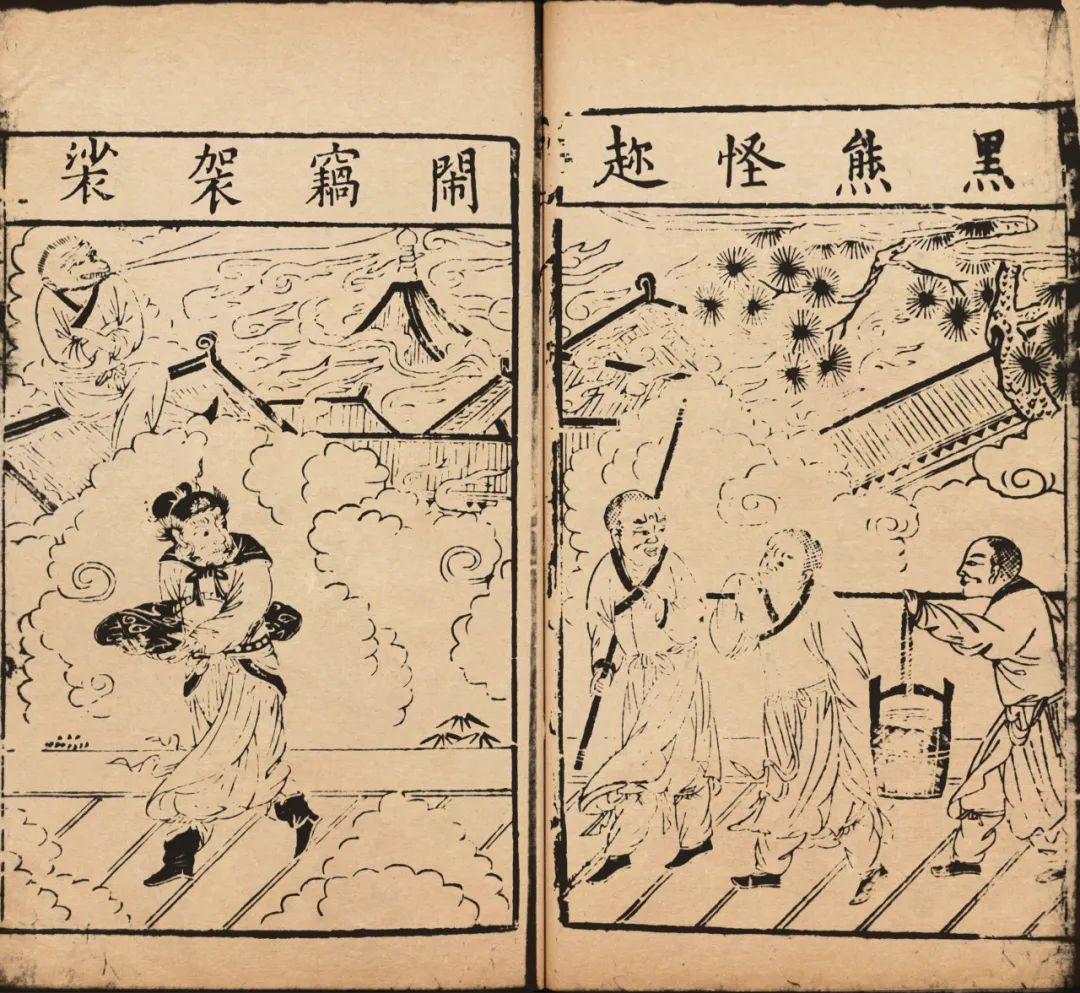 黑熊怪趂
鬧竊袈裟